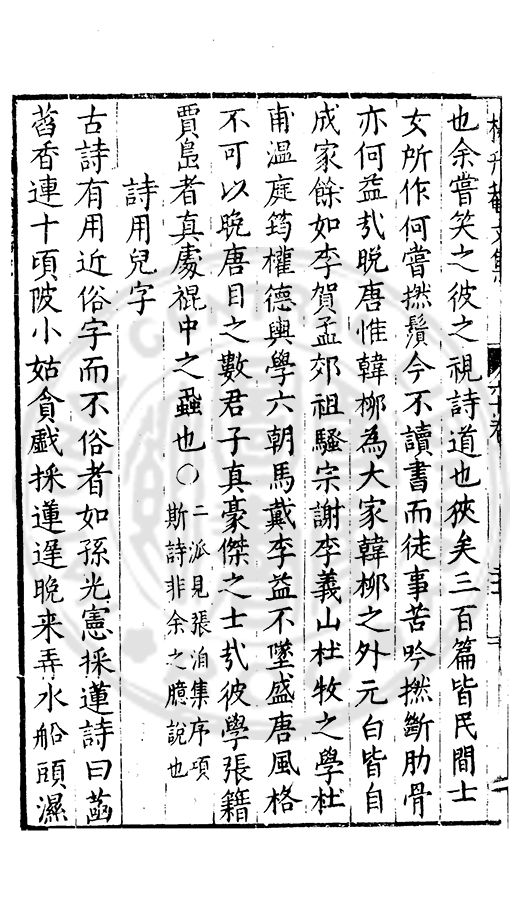 也余嘗笑之彼之視詩道也狹矣三百篇皆民間士
女所作何嘗撚鬚今不讀書而徒事苦吟撚斷肋骨
亦何益㢤晚唐惟韓柳為大家韓柳之外元白皆自
成家餘如李賀孟郊祖騷宗謝李義山杜牧之學杜
甫溫庭筠權德輿學六朝馬戴李益不墜盛唐風格
不可以晚唐目之數君子真豪傑之士㢤彼學張籍
賈島者真處裩中之蝨也〇二派見張洎集序項
斯詩非余之臆說也
詩用兒字
古詩有用近俗字而不俗者如孫光憲採蓮詩曰菡
萏香連十頃陂小姑貪戲採蓮遲晚来弄水船頭濕